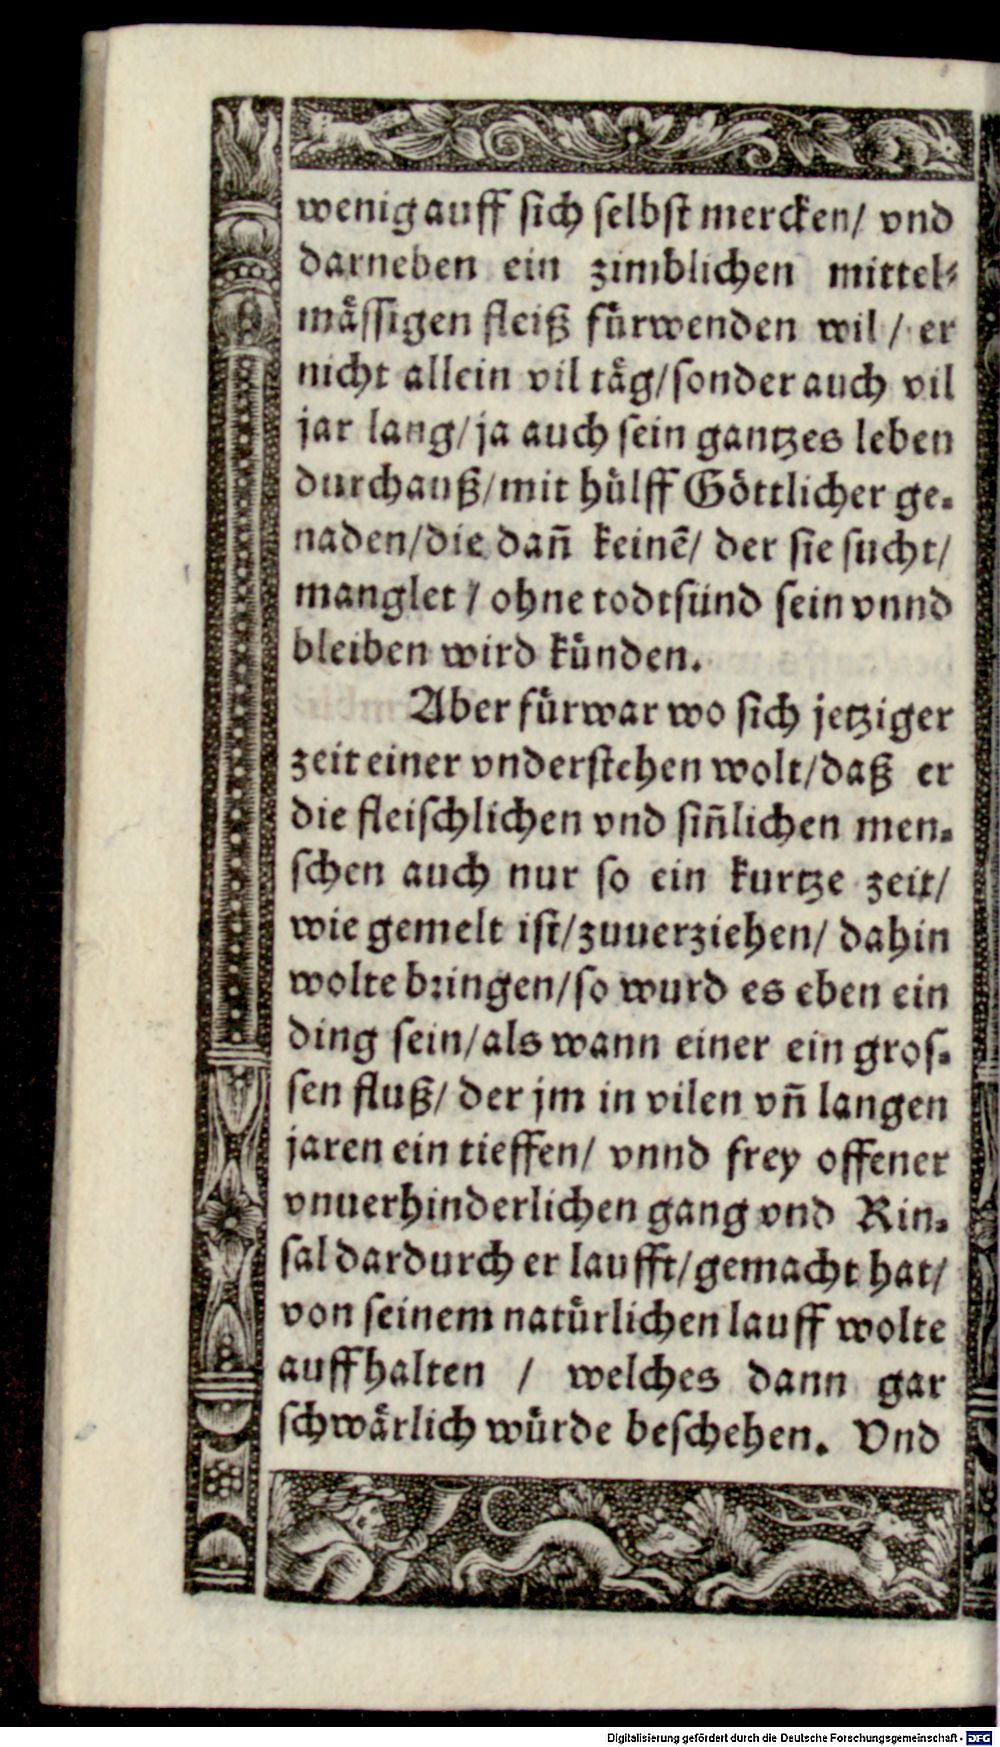 wenig auff sich selbst mercken/ vnd
darneben ein zimblichen mittel⸗
mäſſigen fleiß fürwenden wil / er
nicht allein vil täg/ſonder auch vil
jar lang/ja auch ſein gantzes leben
durchauß/mit hülff Göttlicher ge⸗
naden/die dañ keinẽ/ der ſie ſucht/
manglet / ohne todtſünd ſein vnnd
bleiben wird künden.
Aber fürwar wo ſich jetziger
zeit einer vnderſtehen wolt/daß er
die fleiſchlichen vnd ſiñlichen men⸗
ſchen auch nur ſo ein kurtze zeit/
wie gemelt iſt/zuuerziehen/ dahin
wolte bringen/ſo wurd es eben ein
ding ſein/als wann einer ein groſ⸗
ſen fluß/ der jm in vilen vñ langen
jaren ein tieffen/ vnnd frey offener
vnuerhinderlichen gang vnd Rin⸗
ſal dardurch er laufft/gemacht hat/
von ſeinem natürlichen lauff wolte
auffhalten / welches dann gar
ſchwärlich würde beſchehen. Vnd
Digitalisierung gefördert durch die Deutsche Forschungsgemeinschaft - DFG